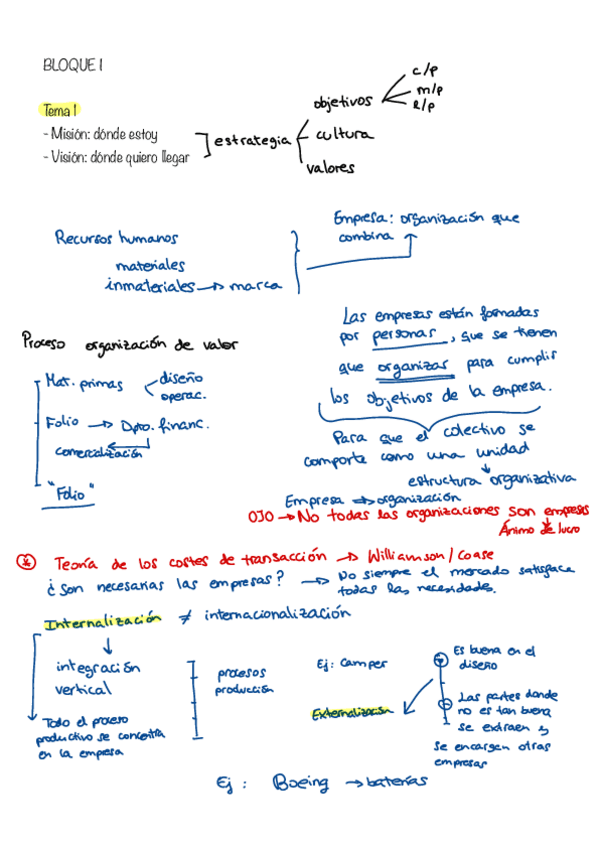 BLOQUE 1
Tema 1
- Misión: dónde estoy
- Visión: dónde quiero llegar
estrategia
objetivos
c/p
m/p
l/p
cultura
valores
Empresa: organización que
combina
Recursos humanos
materiales
inmateriales → marca
Las empresas están formadas
por personas, que se tienen
que organizar para cumplir
los objetivos de la empresa.
Proceso organización de valor
Mat. primas
diseño
operac.
Folio → Dpto. financ.
comercialización
"Folio"
Para que el colectivo se
comporte como una unidad
estructura organizativa
Empresa → organización
OJO → No todas las organizaciones son empresas
Ánimo de lucro
Teoría de los costes de transacción → Williamson / Coase
¿Son necesarias las empresas? → No siempre el mercado satisface
todas las necesidades.
Internalización ≠ internacionalización
integración
vertical
Todo el proceso
productivo se concentra
en la empresa
procesos
producción
Ej: Camper
Externalización
Es buena en el
diseño
Las partes donde
no es tan buena
se extraen y
se encargan otras
empresas
Ej: Boeing → baterías